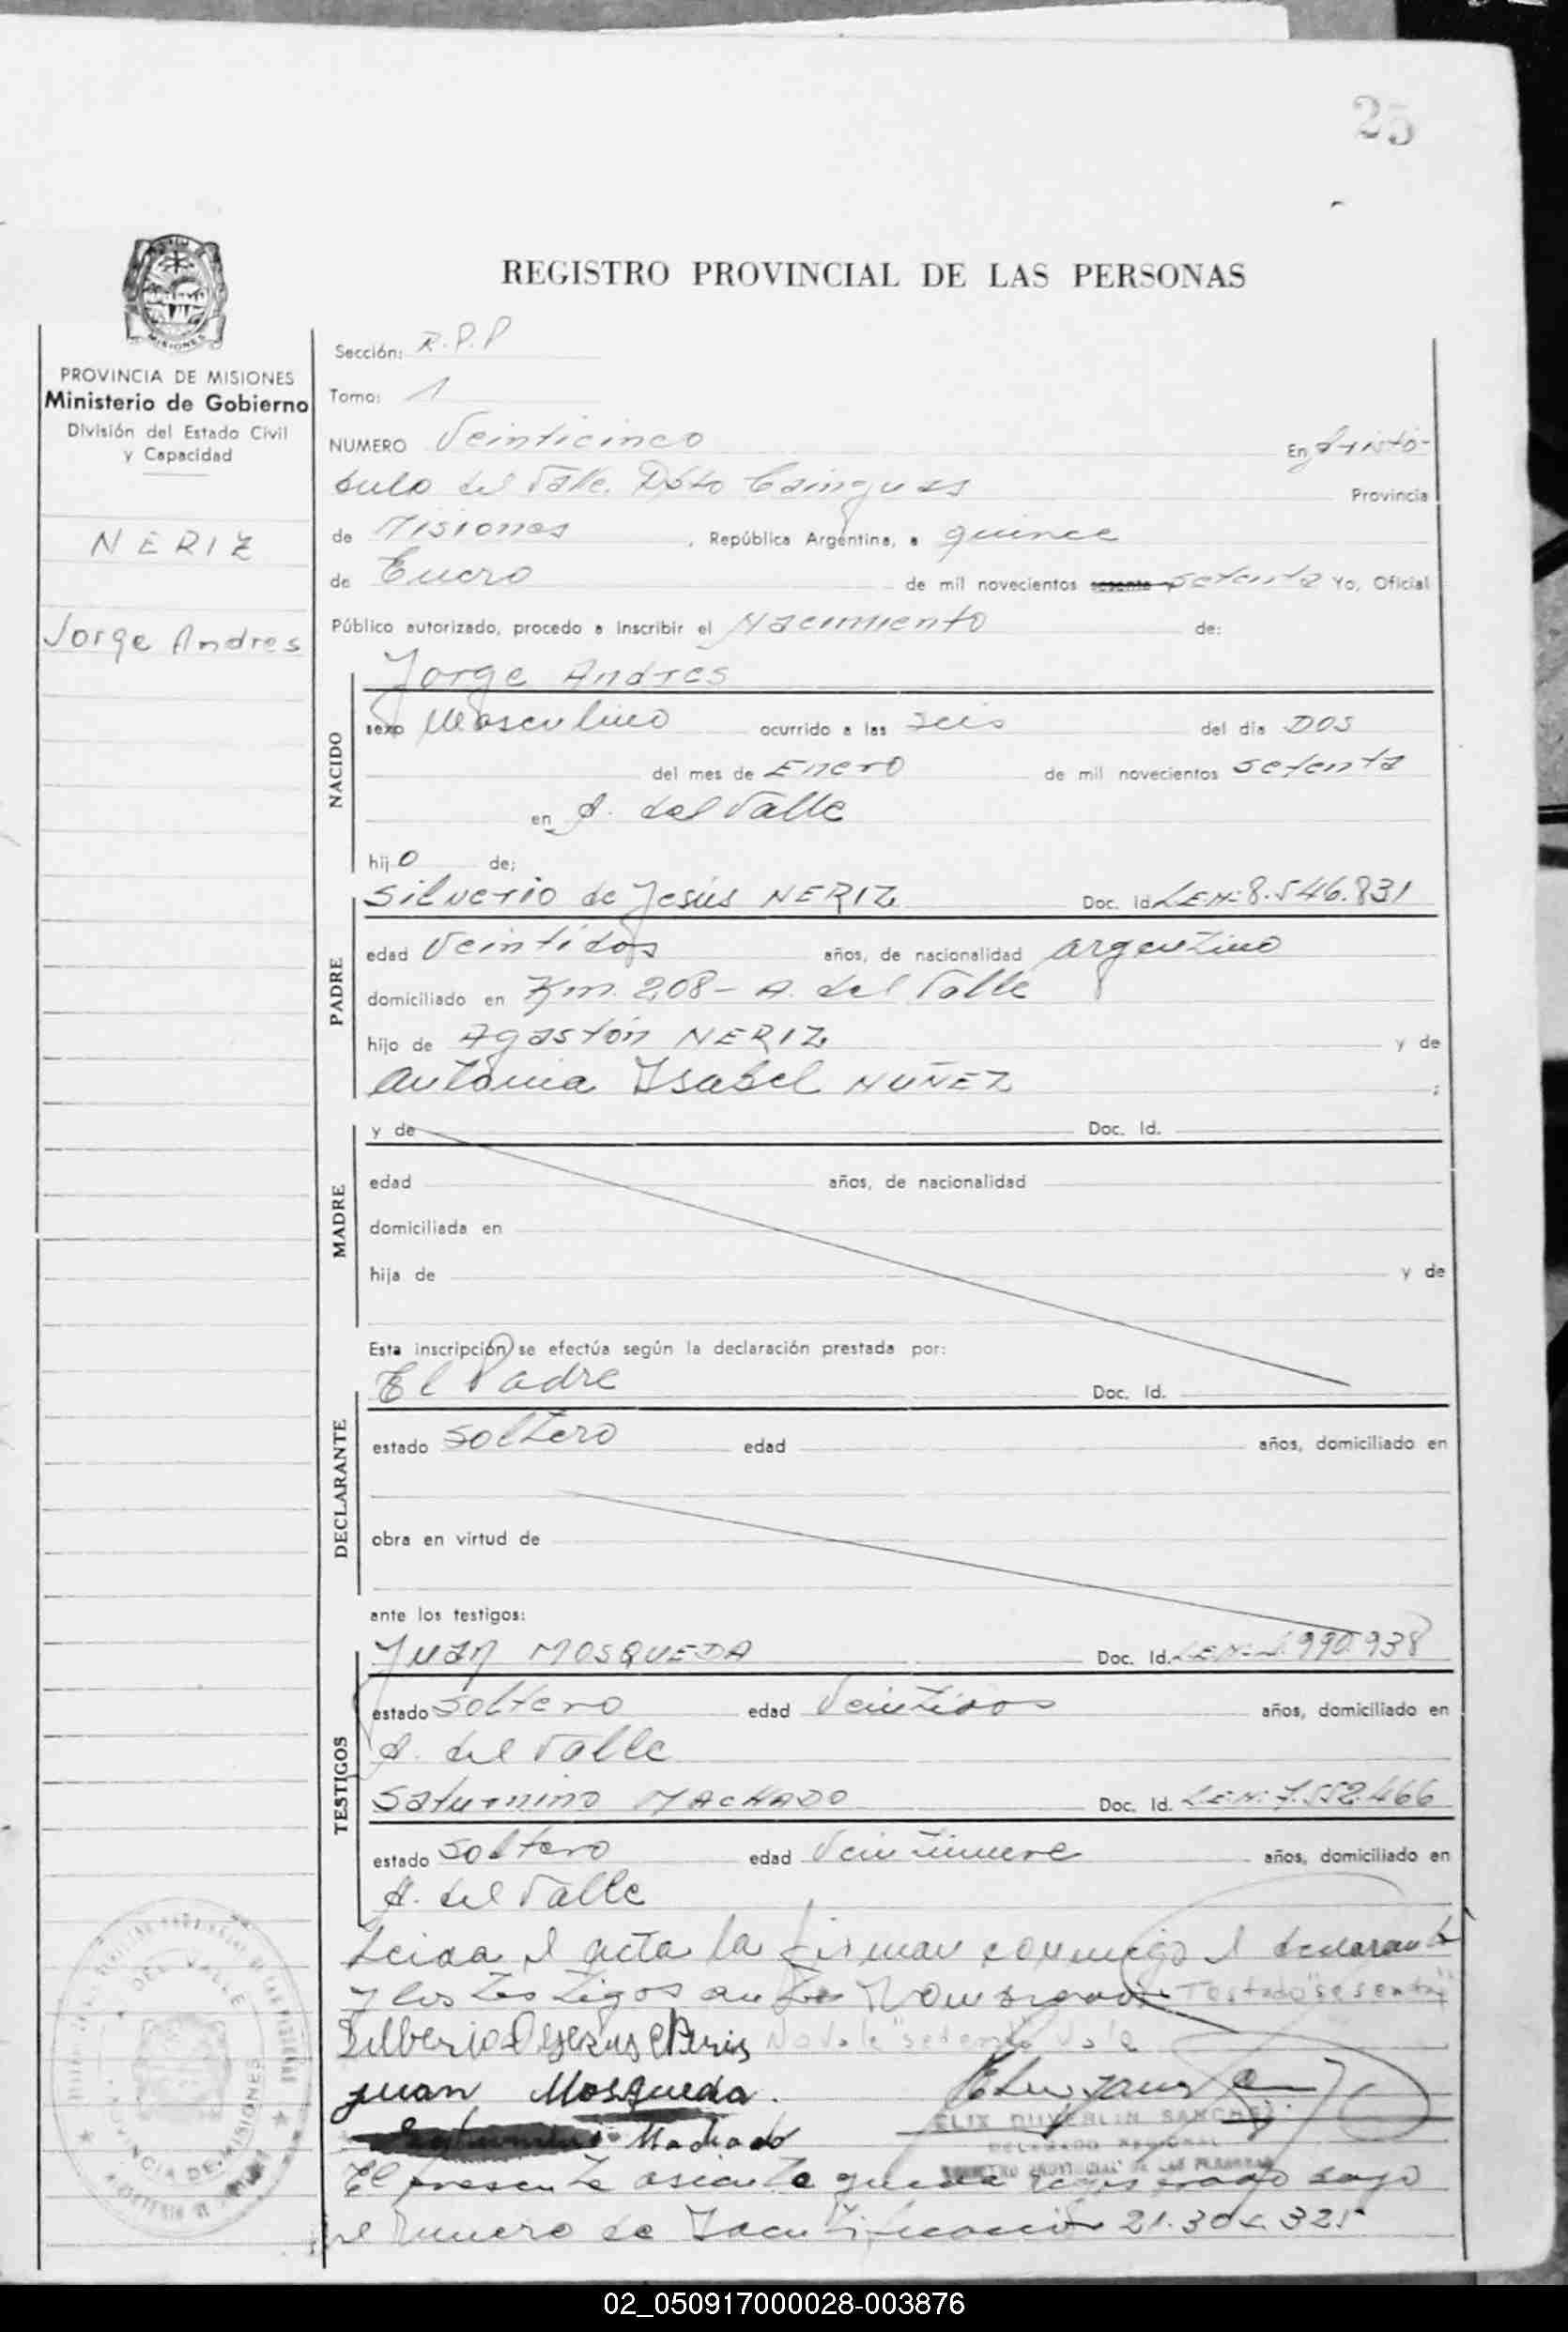 25
REGISTRO PROVINCIAL DE LAS PERSONAS
MISIONES
PROVINCIA DE MISIONES
Ministerio de Gobierno
División del Estado Civil
y Capacidad
NERIZ
Jorge Andres
Sección: R.P.P
Tomo: 1
NUMERO Veinticinco En Aristó-
bulo del Valle. Dpto Cainguas Provincia
de Misiones, República Argentina, a quince
de Enero de mil novecientos sesenta setenta Yo, Oficial
Público autorizado, procedo a inscribir el Nacimiento de:
Jorge Andres
NACIDO
sexo Masculino ocurrido a las seis del día DOS
del mes de Enero de mil novecientos setenta
en A. del Valle
hijo de:
Silverio de Jesús NERIZ Doc. Id. L.E.Nº 8.546.831
PADRE
edad Veintidos años, de nacionalidad argentino
domiciliado en Km. 208- A. del Valle
hijo de Agastón NERIZ y de
Antonia Isabel NUÑEZ ;
MADRE
y de Doc. Id.
edad años, de nacionalidad
domiciliada en
hija de y de
Esta inscripción se efectúa según la declaración prestada por:
El Padre Doc. Id.
DECLARANTE
estado soltero edad años, domiciliado en
obra en virtud de
ante los testigos:
Juan MOSQUEDA Doc. Id. L.E.Nº 990.938
TESTIGOS
estado soltero edad Veintidos años, domiciliado en
A. del Valle
Saturnino MACHADO Doc. Id. L.E.Nº 7.552.466
estado soltero edad Veintinueve años, domiciliado en
A. del Valle
Leida el acta la firman conmigo el declarante
y los testigos antes Testado "sesenta"
No vale "setenta" Vale
juan Mosqueda.
Machado
DELEGADO
REGISTRO PROVINCIAL DE LAS PERSONAS
El presente asiento queda registrado bajo
el Numero de Identificación 21.304.325
DEL VALLE
PROVINCIA DE MISIONES
02_050917000028-003876